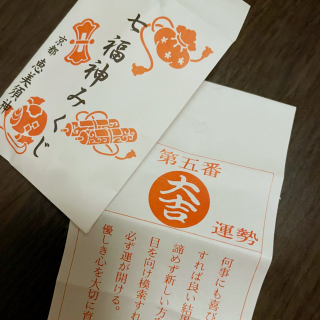 七福神みくじ
京都 恵美須神
第五番
大吉
運勢
何事にも喜び
すれば良い結果
諦めず新しい方
目を向け模索すれ
必ず運が開ける。
優しき心を大切に育